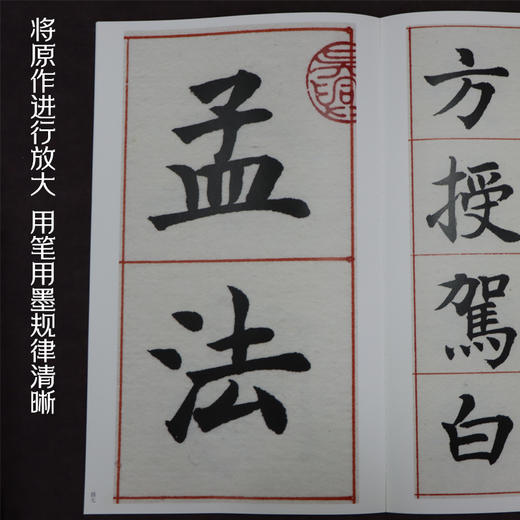 将原作进行放大 用笔用墨规律清晰
孟法
方授駕白